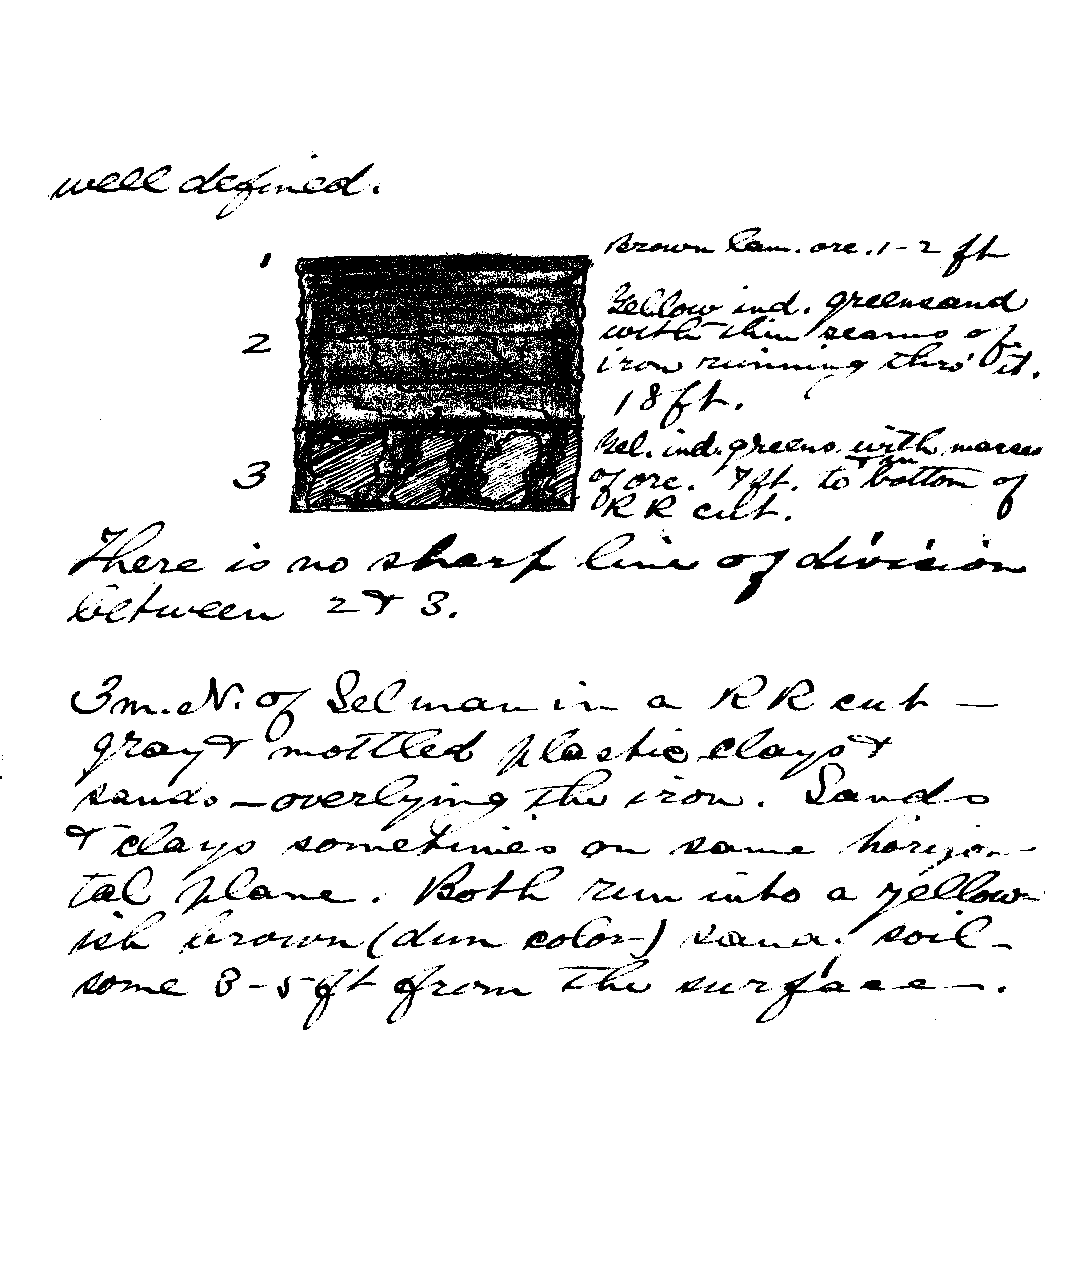 well defined.
1
Brown lam. ore. 1-2 ft
2
Yellow ind. greensand
with thin seams of
iron running thro' it.
18 ft.
3
Yel. ind. greens. with masses
of ore. 7 ft. to bottom of
RR cut.
There is no sharp line of division
between 2 & 3.
3 m. N. of Selman in a RR cut —
gray & mottled plastic clays &
sands — overlying the iron. Sands
& clays sometimes on same horizon-
tal plane. Both run into a yellow-
ish brown (dun color) sand. soil -
some 3-5 ft from the surface.